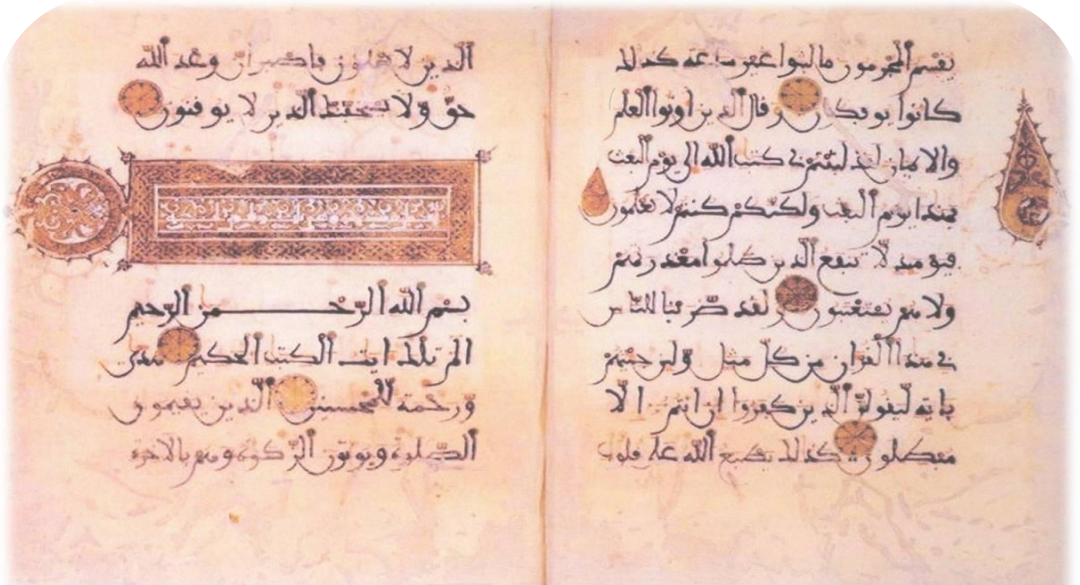 يقسم المجرمون ما لبثوا غير ساعة كذلك
كانوا يوفكون وقال الذين اوتوا العلم
والايمان لقد لبثتم في كتب الله الى يوم البعث
فهذا يوم البعث ولكنكم كنتم لا تعلمون
فيومئذ لا تنفع الذين ظلموا معذرتهم
ولا هم يستعتبون ولقد ضربنا للناس
في هذا القران من كل مثل ولئن جئتهم
باية ليقولن الذين كفروا ان انتم الا
مبطلون كذلك يطبع الله على قلوب
الذين لا يعلمون فاصبر ان وعد الله
حق ولا يستخفنك الذين لا يوقنون
بسم الله الرحمن الرحيم
الم تلك ايت الكتب الحكيم هدى
ورحمة للمحسنين الذين يقيمون
الصلوة ويوتون الزكوة وهم بالاخرة